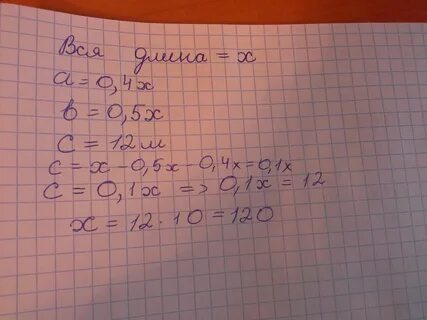 Вся длина = x
a = 0,4x
b = 0,5x
C = 12 м
c = x - 0,5x - 0,4x = 0,1x
C = 0,1x => 0,1x = 12
x = 12 · 10 = 120